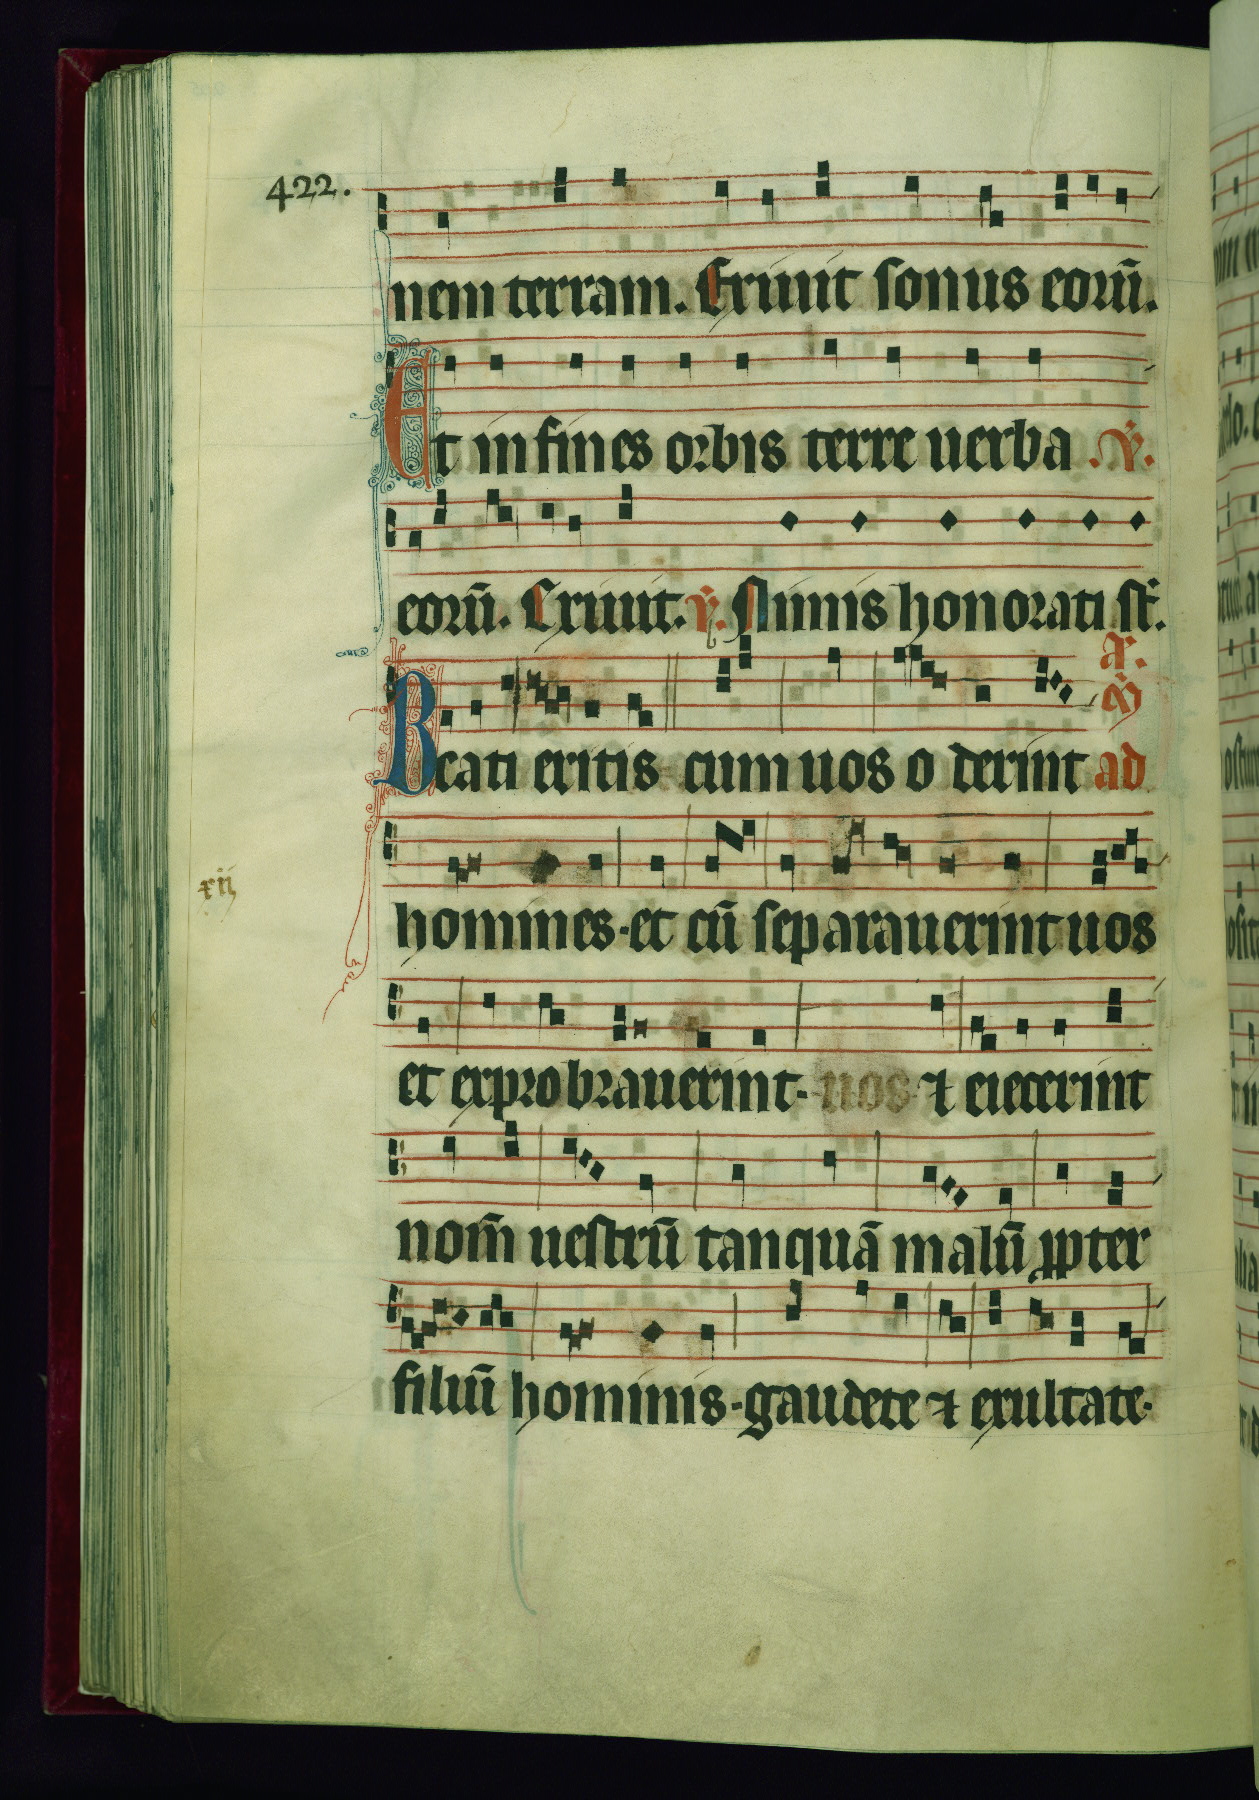 422.
nem terram. Exiuit sonus eorū.
Et in fines orbis terre uerba .℣.
eorū. Exiuit. ℣. Nimis honorati st̄.
añ.
Beati eritis cum uos o derint ad
xij
homines·et cū separauerint uos
et exprobrauerint·uos·⁊ eiecerint
nom̄ uestrū tanquā malū ꝓpter
filiū hominis·gaudete ⁊ exultate·